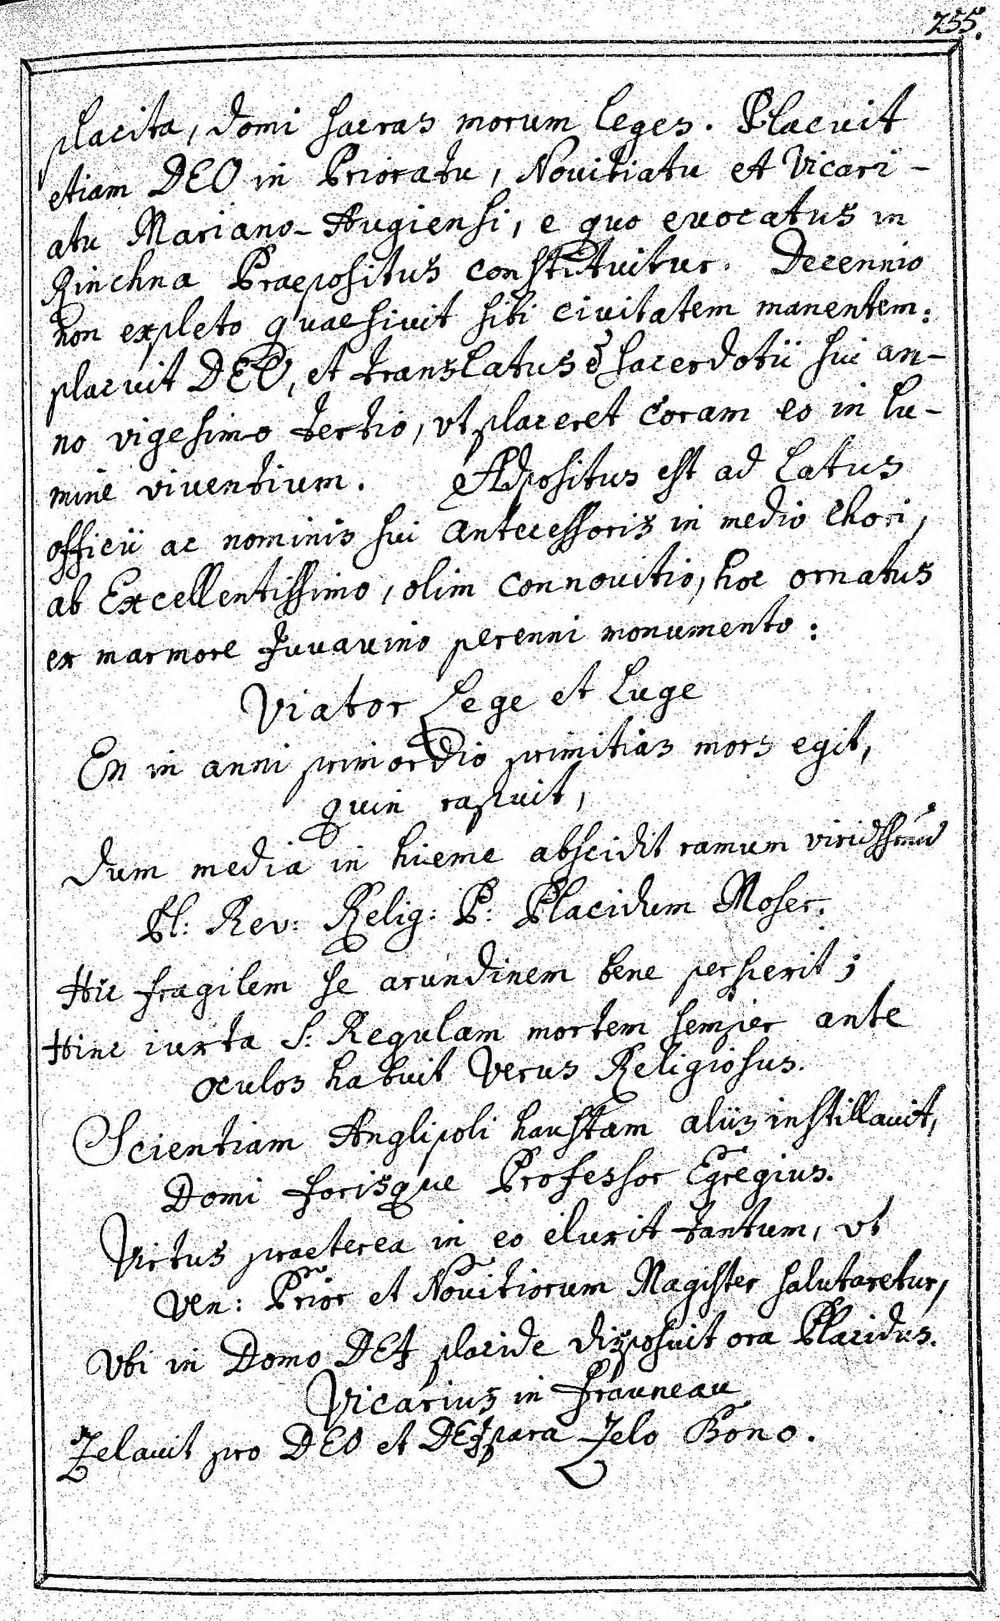 255.
placita, domi sacras morum leges. Placuit
etiam DEO in Prioratu, Novitiatu et Vicari-
atu Mariano-Augiensi, e quo evocatus in
Rinchna Praepositus constituitur. Decennio
non expleto quaesivit sibi civitatem manentem:
placuit DEO, et translatus è sacerdotii sui an-
no vigesimo tertio, vt placeret coram eo in lu-
mine viventium. Adpositus est ad latus
officii ac nominis sui antecessoris in medio Chori,
ab Excellentissimo, olim connovitio, hoc ornatus
ex marmore Juvavino perenni monumento:
Viator Lege et Luge
En in anni primordio primitias mors egit,
quin rapuit,
Dum media in hieme abscidit ramum viridissimũ
Pl: Rev: Relig: P: Placidum Moser.
Hic fragilem se arundinem bene persperit;
Hinc iuxta S: Regulam mortem semper ante
oculos habuit Verus Religiosus.
Scientiam Anglipoli haustam aliis instillavit,
Domi forisque Professor Egregius.
Virtus praeterea in eo eluxit tantum, vt
Ven: Prior et Novitiorum Magister salutaretur,
Vbi in Domo DEI placide disposuit ora Placidus.
Vicarius in Frauneau
Zelavit pro DEO et DEIpara Zelo Bono.